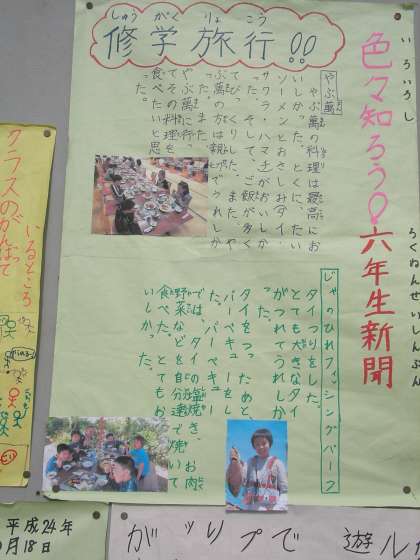 しゅうがくりょこう
修学旅行!!
いろいろし
色々知ろう!
ろくねんせいしんぶん
六年生新聞
やぶ萬
やぶ萬の料理は最高にお
いしかった。とくに、たい
ソーメンとおさしみタイ・
サワラ・ハマチがおいしか
った。そして、ご飯が多く
てびっくりした。また、や
ぶ萬の方は親切でうれしか
った。また
やぶ萬に行っ
てその料理を
食べたいと思
った。
じゃのひれフィッシングパーク
タイつりをした。
とても大きなタイ
がつれてうれしか
った。
タイをつったあと、
バーベキューをし
た。バーベキュー
では、タイの塩焼き、お肉
野菜などを自分達で焼いて
食べた。とてもお
いしかった。
クラスのがんばって
いるところ
平成24年
月18日
がッリプで
遊ル